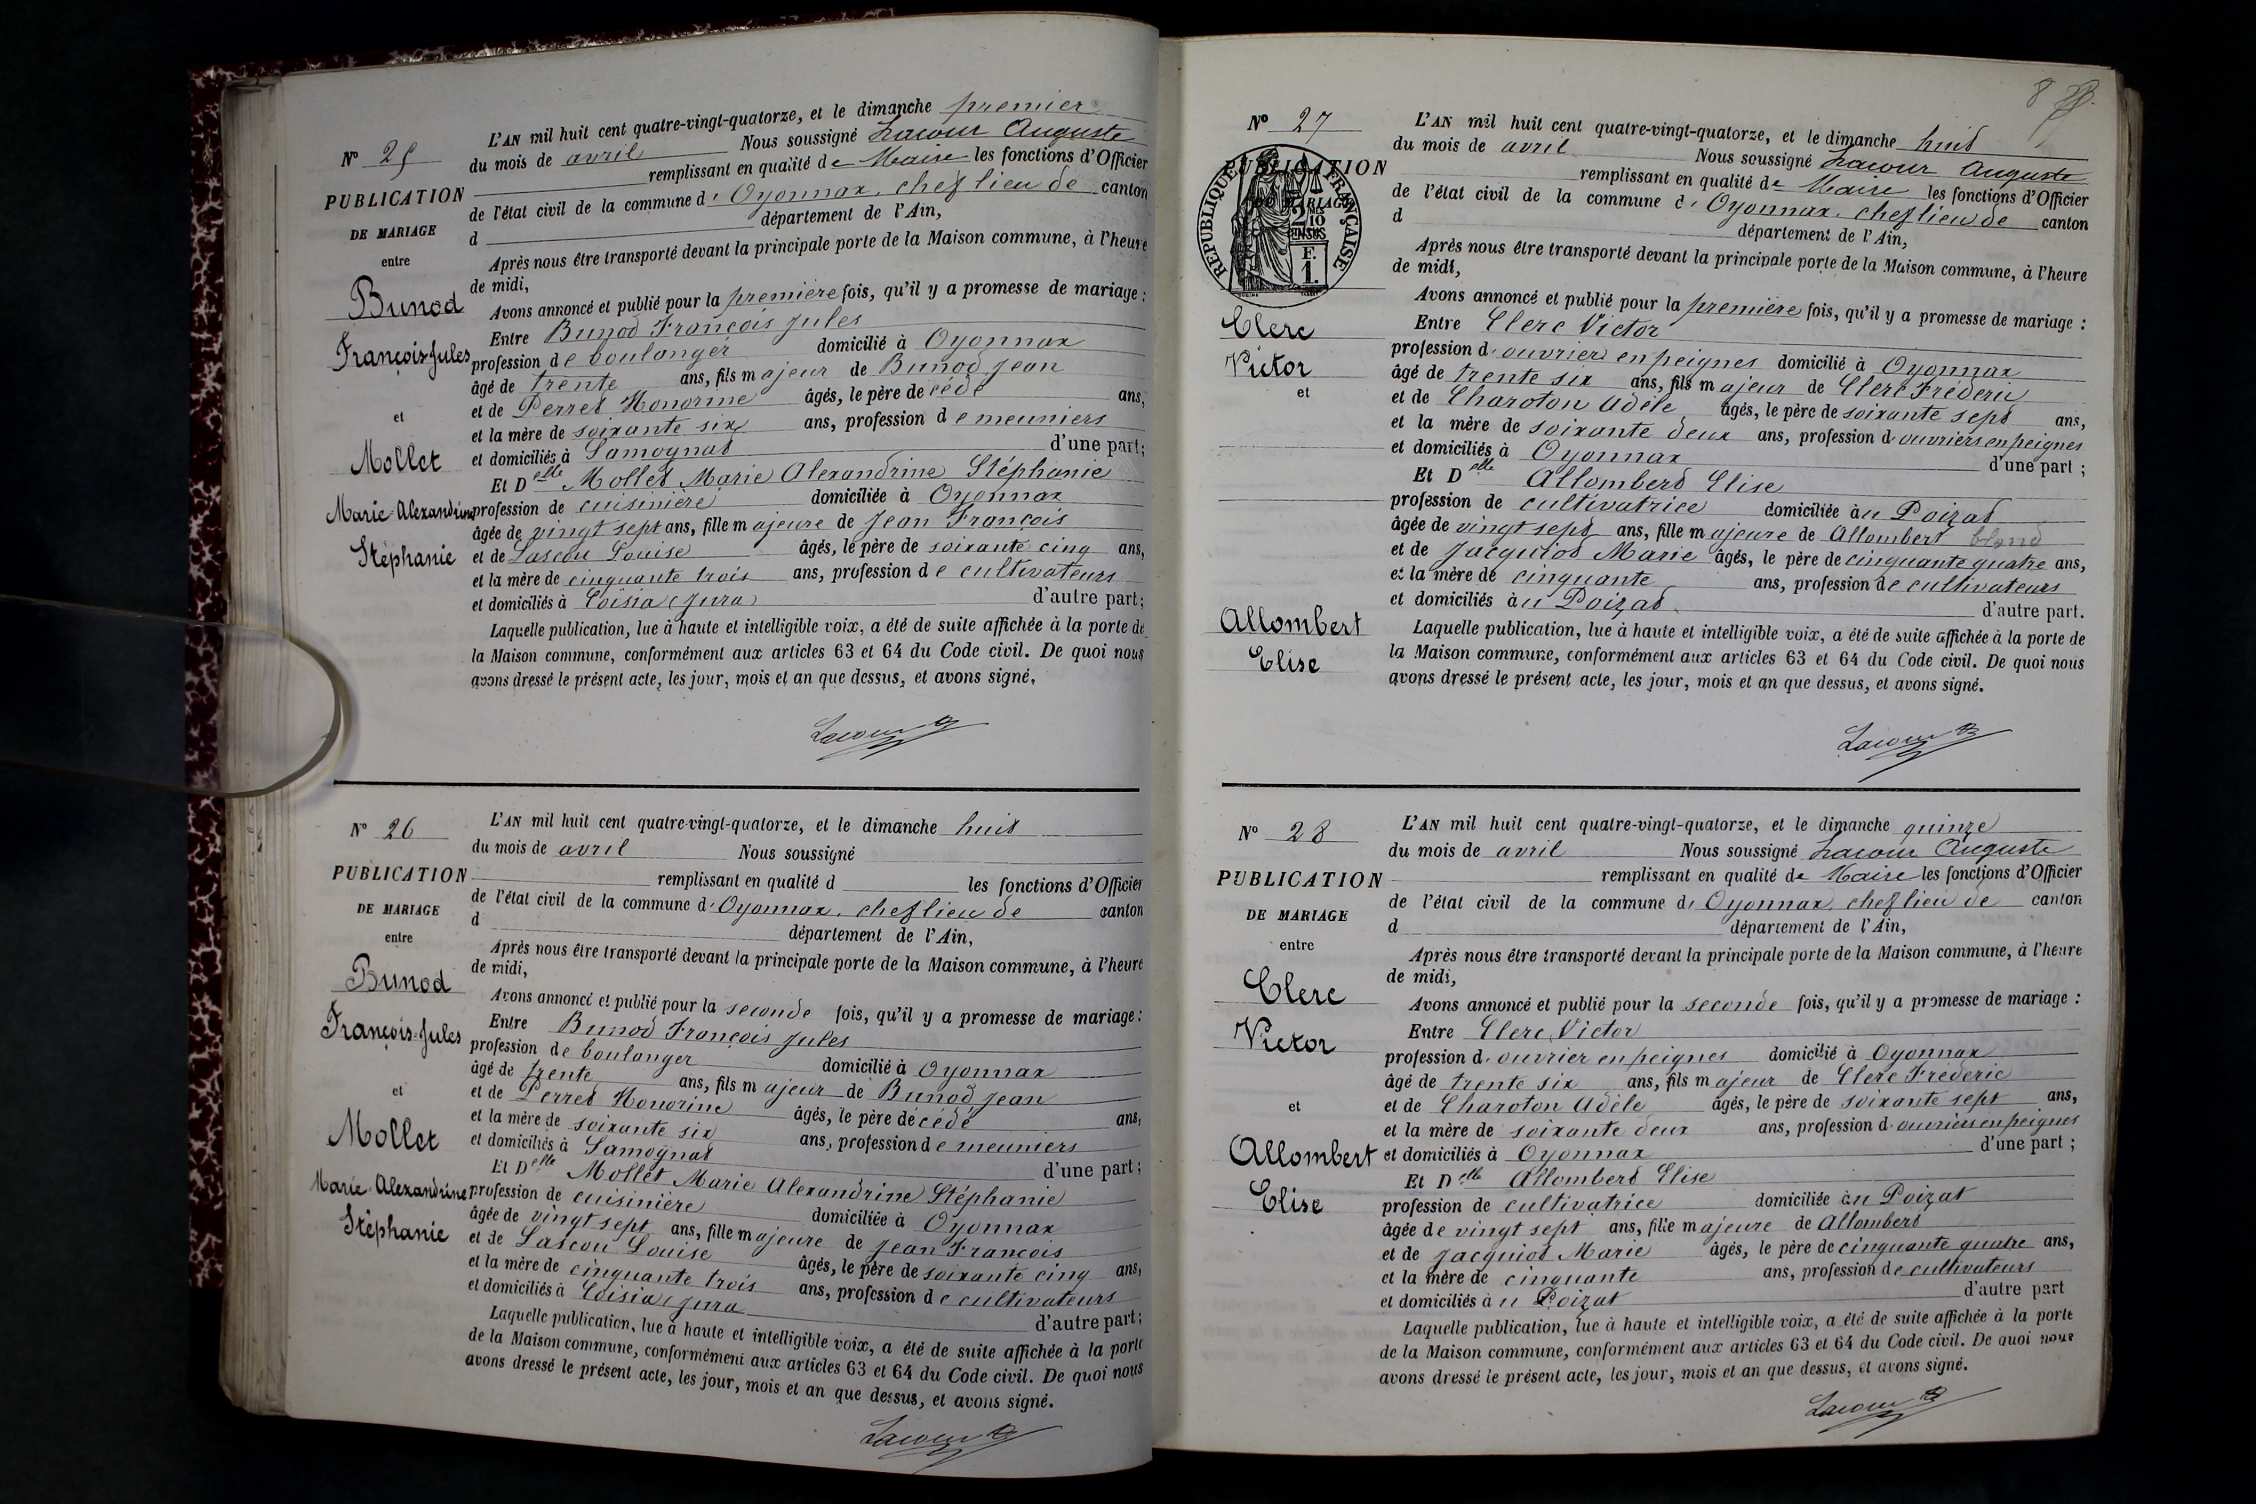 N° 25
PUBLICATION
DE MARIAGE
entre
Bunod
François-Jules
et
Mollet
Marie-Alexandrine
Stéphanie
L'AN mil huit cent quatre-vingt-quatorze, et le dimanche premier
du mois de avril Nous soussigné Lacour Auguste
remplissant en qualité de Maire les fonctions d'Officier
de l'état civil de la commune d' Oyonnax, chef lieu de canton
d département de l'Ain,
Après nous être transporté devant la principale porte de la Maison commune, à l'heure
de midi,
Avons annoncé et publié pour la première fois, qu'il y a promesse de mariage :
Entre Bunod François Jules
profession de boulanger domicilié à Oyonnax
âgé de trente ans, fils majeur de Bunod Jean
et de Perret Honorine âgés, le père de cédé ans,
et la mère de soixante six ans, profession de meuniers
et domiciliés à Samognat d'une part;
Et Delle Mollet Marie Alexandrine Stéphanie
profession de cuisinière domiciliée à Oyonnax
âgée de vingt sept ans, fille majeure de Jean François
et de Lascou Louise âgés, le père de soixante cinq ans,
et la mère de cinquante trois ans, profession de cultivateurs
et domiciliés à Loisia (Jura) d'autre part;
Laquelle publication, lue à haute et intelligible voix, a été de suite affichée à la porte de
la Maison commune, conformément aux articles 63 et 64 du Code civil. De quoi nous
avons dressé le présent acte, les jour, mois et an que dessus, et avons signé.
Lacour
N° 26
PUBLICATION
DE MARIAGE
entre
Bunod
François-Jules
et
Mollet
Marie-Alexandrine
Stéphanie
L'AN mil huit cent quatre-vingt-quatorze, et le dimanche huit
du mois de avril Nous soussigné
remplissant en qualité d les fonctions d'Officier
de l'état civil de la commune d' Oyonnax, chef lieu de canton
d département de l'Ain,
Après nous être transporté devant la principale porte de la Maison commune, à l'heure
de midi,
Avons annoncé et publié pour la seconde fois, qu'il y a promesse de mariage :
Entre Bunod François Jules
profession de boulanger domicilié à Oyonnax
âgé de trente ans, fils majeur de Bunod Jean
et de Perret Honorine âgés, le père de cédé ans,
et la mère de soixante six ans, profession de meuniers
et domiciliés à Samognat d'une part;
Et Delle Mollet Marie Alexandrine Stéphanie
profession de cuisinière domiciliée à Oyonnax
âgée de vingt sept ans, fille majeure de Jean François
et de Lascou Louise âgés, le père de soixante cinq ans,
et la mère de cinquante trois ans, profession de cultivateurs
et domiciliés à Loisia (Jura d'autre part;
Laquelle publication, lue à haute et intelligible voix, a été de suite affichée à la porte
de la Maison commune, conformément aux articles 63 et 64 du Code civil. De quoi nous
avons dressé le présent acte, les jour, mois et an que dessus, et avons signé.
Lacour
8
N° 27
PUBLICATION
DE MARIAGE
RÉPUBLIQUE FRANÇAISE
2/10 EN SUS
F.
1.
Clerc
Victor
et
Allombert
Elise
L'AN mil huit cent quatre-vingt-quatorze, et le dimanche huit
du mois de avril Nous soussigné Lacour Auguste
remplissant en qualité de Maire les fonctions d'Officier
de l'état civil de la commune d' Oyonnax, chef lieu de canton
d département de l'Ain,
Après nous être transporté devant la principale porte de la Maison commune, à l'heure
de midi,
Avons annoncé et publié pour la première fois, qu'il y a promesse de mariage :
Entre Clerc Victor
profession d' ouvrier en peignes domicilié à Oyonnax
âgé de trente six ans, fils majeur de Clerc Fréderic
et de Charoton Adèle âgés, le père de soixante sept ans,
et la mère de soixante deux ans, profession d' ouvriers en peignes
et domiciliés à Oyonnax d'une part ;
Et Delle Allombert Elise
profession de cultivatrice domiciliée au Poizat
âgée de vingt sept ans, fille majeure de Allombert blond
et de Jacquiot Marie âgés, le père de cinquante quatre ans,
et la mère de cinquante ans, profession de cultivateurs
et domiciliés au Poizat d'autre part.
Laquelle publication, lue à haute et intelligible voix, a été de suite affichée à la porte de
la Maison commune, conformément aux articles 63 et 64 du Code civil. De quoi nous
avons dressé le présent acte, les jour, mois et an que dessus, et avons signé.
Lacour
N° 28
PUBLICATION
DE MARIAGE
entre
Clerc
Victor
et
Allombert
Elise
L'AN mil huit cent quatre-vingt-quatorze, et le dimanche quinze
du mois de avril Nous soussigné Lacour Auguste
remplissant en qualité de Maire les fonctions d'Officier
de l'état civil de la commune d' Oyonnax, chef lieu de canton
d département de l'Ain,
Après nous être transporté devant la principale porte de la Maison commune, à l'heure
de midi,
Avons annoncé et publié pour la seconde fois, qu'il y a promesse de mariage :
Entre Clerc Victor
profession d' ouvrier en peignes domicilié à Oyonnax
âgé de trente six ans, fils majeur de Clerc Fréderic
et de Charoton Adèle âgés, le père de soixante sept ans,
et la mère de soixante deux ans, profession d' ouvriers en peignes
et domiciliés à Oyonnax d'une part ;
Et Delle Allombert Elise
profession de cultivatrice domiciliée au Poizat
âgée de vingt sept ans, fille majeure de Allombert
et de Jacquiot Marie âgés, le père de cinquante quatre ans,
et la mère de cinquante ans, profession de cultivateurs
et domiciliés au Poizat d'autre part
Laquelle publication, lue à haute et intelligible voix, a été de suite affichée à la porte
de la Maison commune, conformément aux articles 63 et 64 du Code civil. De quoi nous
avons dressé le présent acte, les jour, mois et an que dessus, et avons signé.
Lacour